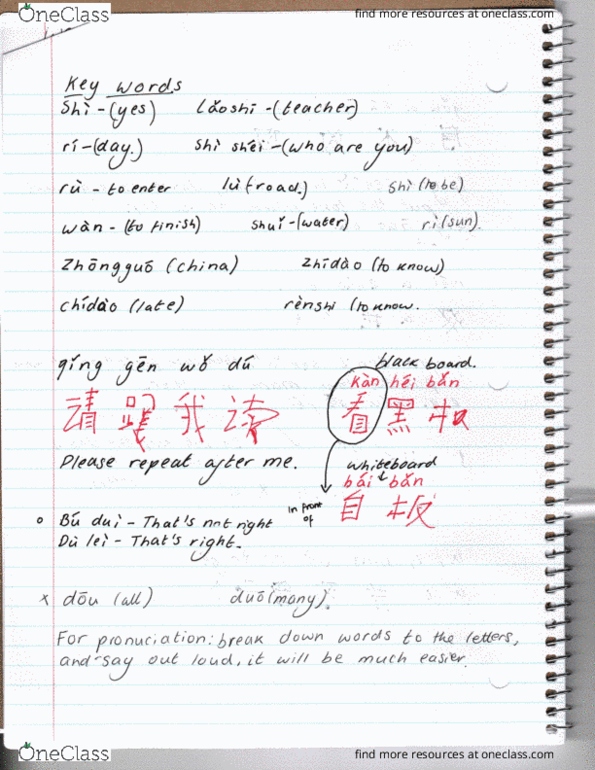 OneClass find more resources at oneclass.com
Key words
Shì - (yes) lǎoshī - (teacher)
rí - (day.) shì shéi - (who are you)
rù - to enter lù (road.) Shì (to be)
wàn - (to finish) shuǐ - (water) rì (sun).
Zhōngguó (china) zhīdào (to know)
chídào (late) rènshi (to know.
qǐng gēn wǒ dú black board.
kàn héi bǎn
請 跟 我 读 看 黑 板
Please repeat after me. whiteboard
bái bǎn
in front of 自 板
Bú duì - That's not right
Dù leì - That's right.
x dōu (all) duō (many).
For pronuciation: break down words to the letters,
and say out loud, it will be much easier.
OneClass find more resources at oneclass.com